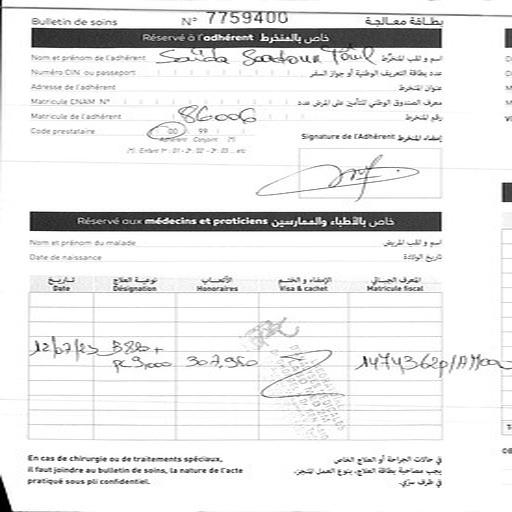 Bulletin de soins N° 7759400 بطاقة معالجة
Réservé à l'adhérent خاص بالمنخرط
Nom et prénom de l'adhérent Saïda اسم و لقب المنخرط
Numéro CIN ou passeport عدد بطاقة التعريف الوطنية أو جواز السفر
Adresse de l'adhérent عنوان المنخرط
Matricule CNAM N° معرف الصندوق الوطني للتأمين على المرض عدد
Matricule de l'adhérent 86006 رقم المنخرط
Code prestataire 00 99
Adhérent Conjoint (*)
(*). Enfant 1er : 01 - 2e: 02 - 3e: 03 ... etc
Signature de l'Adhérent إمضاء المنخرط
Réservé aux médecins et praticiens خاص بالأطباء والممارسين
Nom et prénom du malade اسم و لقب المريض
Date de naissance تاريخ الولادة
تاريخ نوعية العلاج الأتعاب الإمضاء و الختم المعرف الجبائي
Date Désignation Honoraires Visa & cachet Matricule fiscal
12/07/23 B880+
PC 9,000 307,960 1474362p/AM000
En cas de chirurgie ou de traitements spéciaux,
il faut joindre au bulletin de soins, la nature de l'acte
pratiqué sous pli confidentiel.
في حالات الجراحة أو العلاج الخاص
يجب مصاحبة بطاقة العلاج، بنوع العمل المنجز،
في ظرف سري.